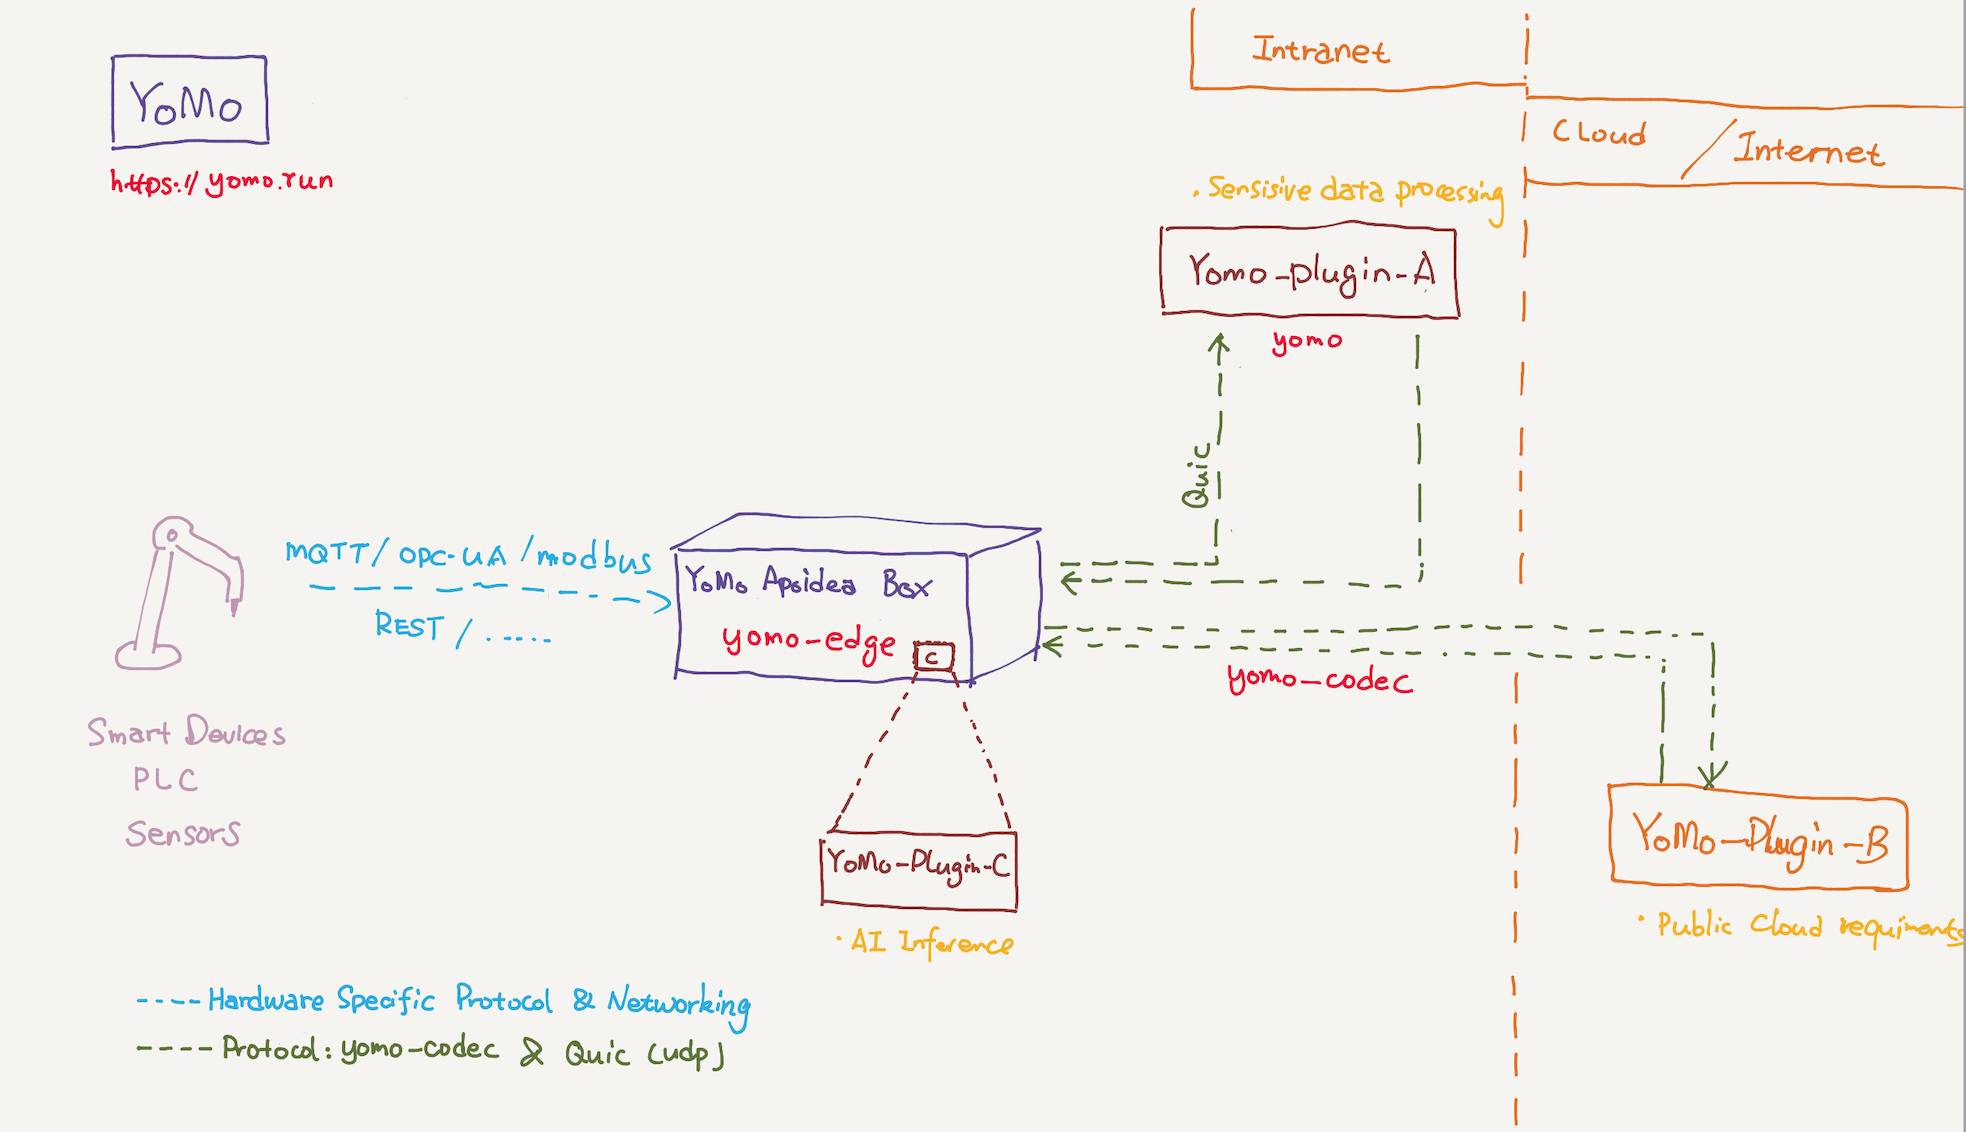 YoMo
https://yomo.run
Intranet
Cloud / Internet
. Sensisive data processing
Yomo-plugin-A
yomo
Quic
MQTT / OPC-UA / modbus
REST / .....
YoMo Apsidea Box
yomo-edge
C
yomo-codec
Smart Devices
PLC
Sensors
YoMo-Plugin-C
· AI Inference
YoMo-Plugin-B
· Public Cloud requiments
---- Hardware Specific Protocol & Networking
---- Protocol: yomo-codec & Quic (udp)